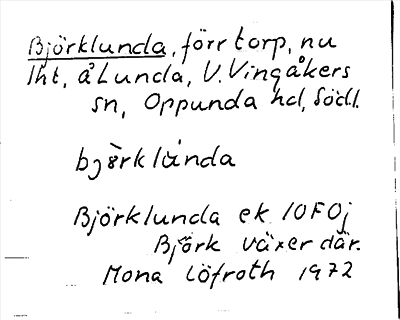 Björklunda, förr torp, nu
lht, å Lunda, V. Vingåkers
sn, Oppunda hd, Södl.
bjö̀rklùnda
Björklunda ek. 10F0j
Björk växer där.
Mona Löfroth 1972